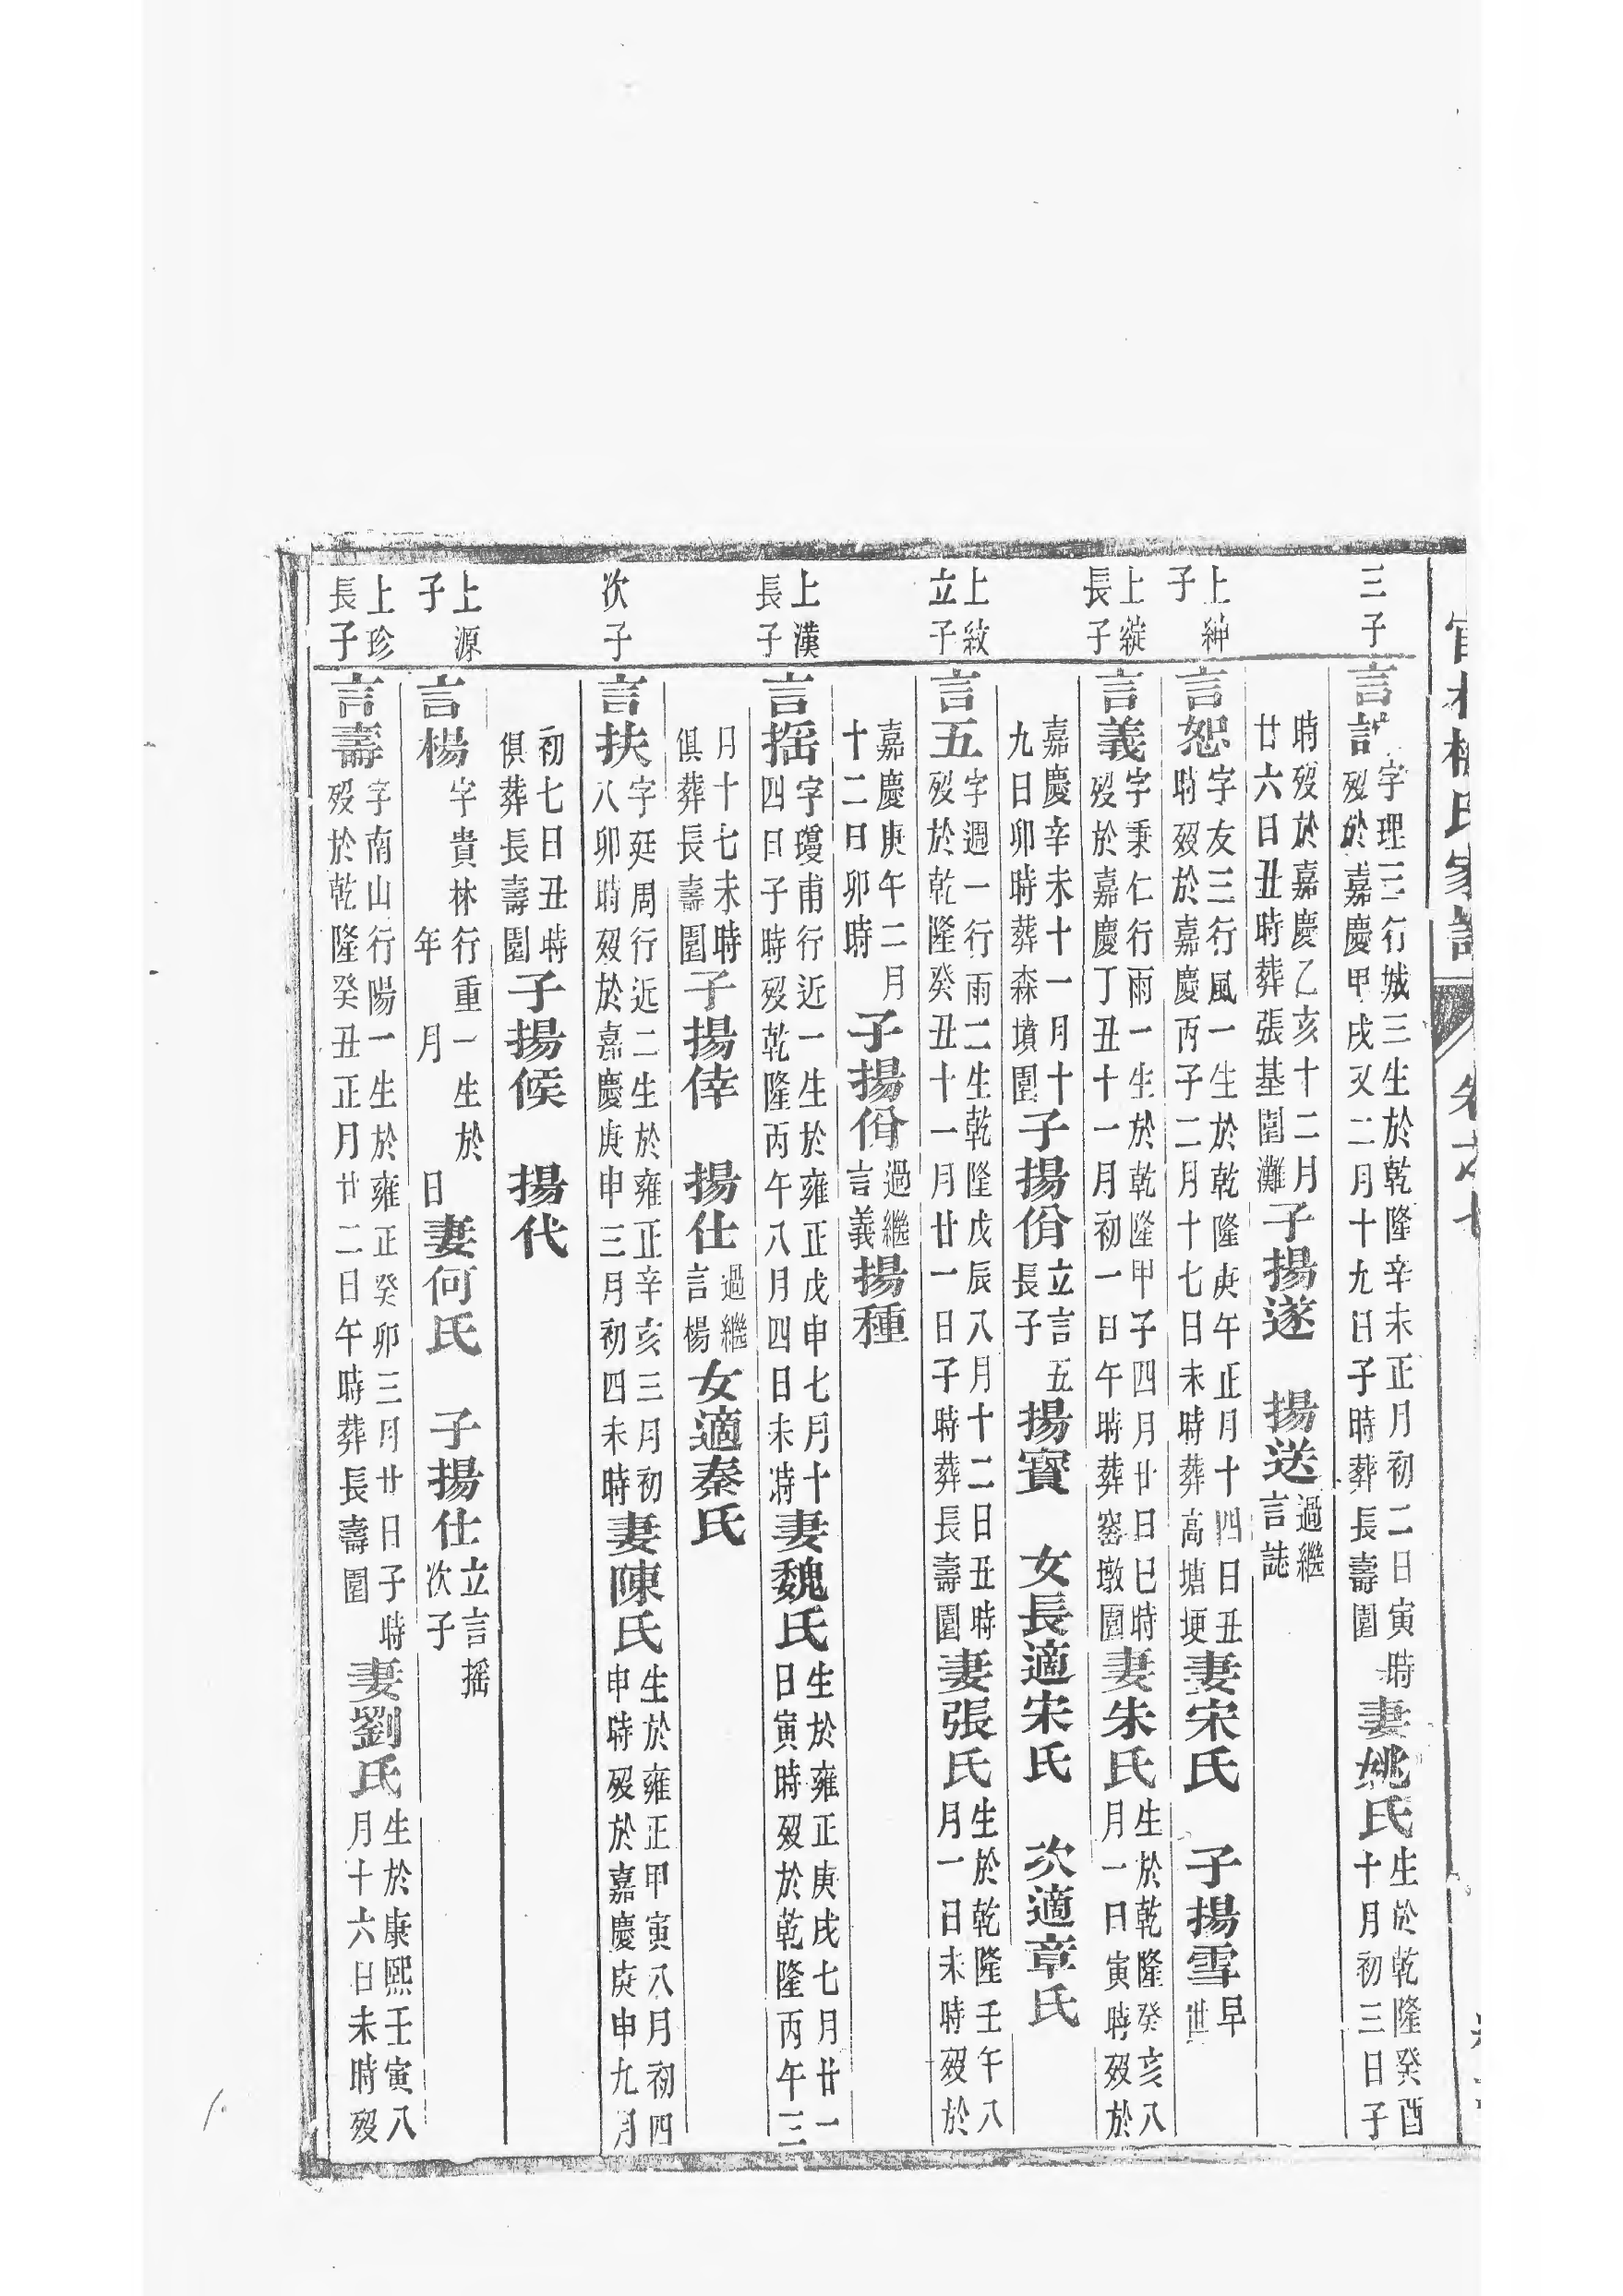 氏家
卷之七
三子
言
字理三行城三生於乾隆辛未正月初二日寅時
歿於嘉慶甲戌又二月十九日子時葬長壽園
妻姚氏
生於乾隆癸酉
十月初三日子
時歿於嘉慶乙亥十二月
廿六日丑時葬張基園灘
子揚遂 揚送
過繼
言誌
上紳
子
言恕
字友三行風一生於乾隆庚午正月十四日丑
時歿於嘉慶丙子二月十七日未時葬高塘埂
妻宋氏 子揚雪
早
世
上綻
長子
言義
字秉仁行雨一生於乾隆甲子四月廿日巳時
歿於嘉慶丁丑十一月初一日午時葬窑墩園
妻朱氏
生於乾隆癸亥八
月一日寅時歿於
嘉慶辛未十一月十
九日卯時葬森墳園
子揚佾
立言五
長子
揚寳 女長適宋氏 次適章氏
上紋
立子
言五
字週一行雨二生乾隆戊辰八月十二日丑時
歿於乾隆癸丑十一月廿一日子時葬長壽園
妻張氏
生於乾隆壬午八
月一日未時歿於
嘉慶庚午二月
十二日卯時
子揚佾
過繼
言義
揚種
上漢
長子
言摇
字瓊甫行近一生於雍正戊申七月十
四日子時歿乾隆丙午八月四日未時
妻魏氏
生於雍正庚戌七月廿一
日寅時歿於乾隆丙午三
月十七未時
俱葬長壽園
子揚倖 揚仕
過繼
言楊
女適秦氏
次子
言扶
字廷周行近二生於雍正辛亥三月初
八卯時歿於嘉慶庚申三月初四未時
妻陳氏
生於雍正甲寅八月初四
申時歿於嘉慶庚申九月
初七日丑時
俱葬長壽園
子揚候 揚代
上源
子
言楊
字貴林行重一生於
年 月 日
妻何氏 子揚仕
立言摇
次子
上珍
長子
言壽
字南山行陽一生於雍正癸卯三月廿日子時
歿於乾隆癸丑正月廿二日午時葬長壽園
妻劉氏
生於康熙壬寅八
月十六日未時歿